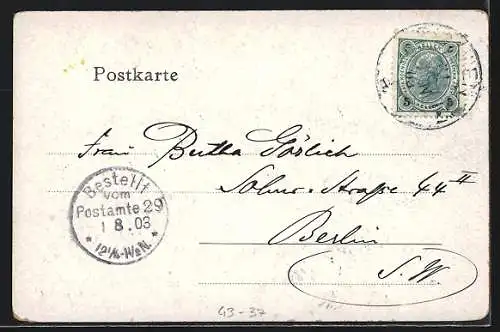 Postkarte
5 5
Frau Bertha Görlich
Solms-Straße 44 II
Berlin
S.W.
Bestellt
vom
Postamte 29
1 8.03
* 12¼-1½N. *
43-37